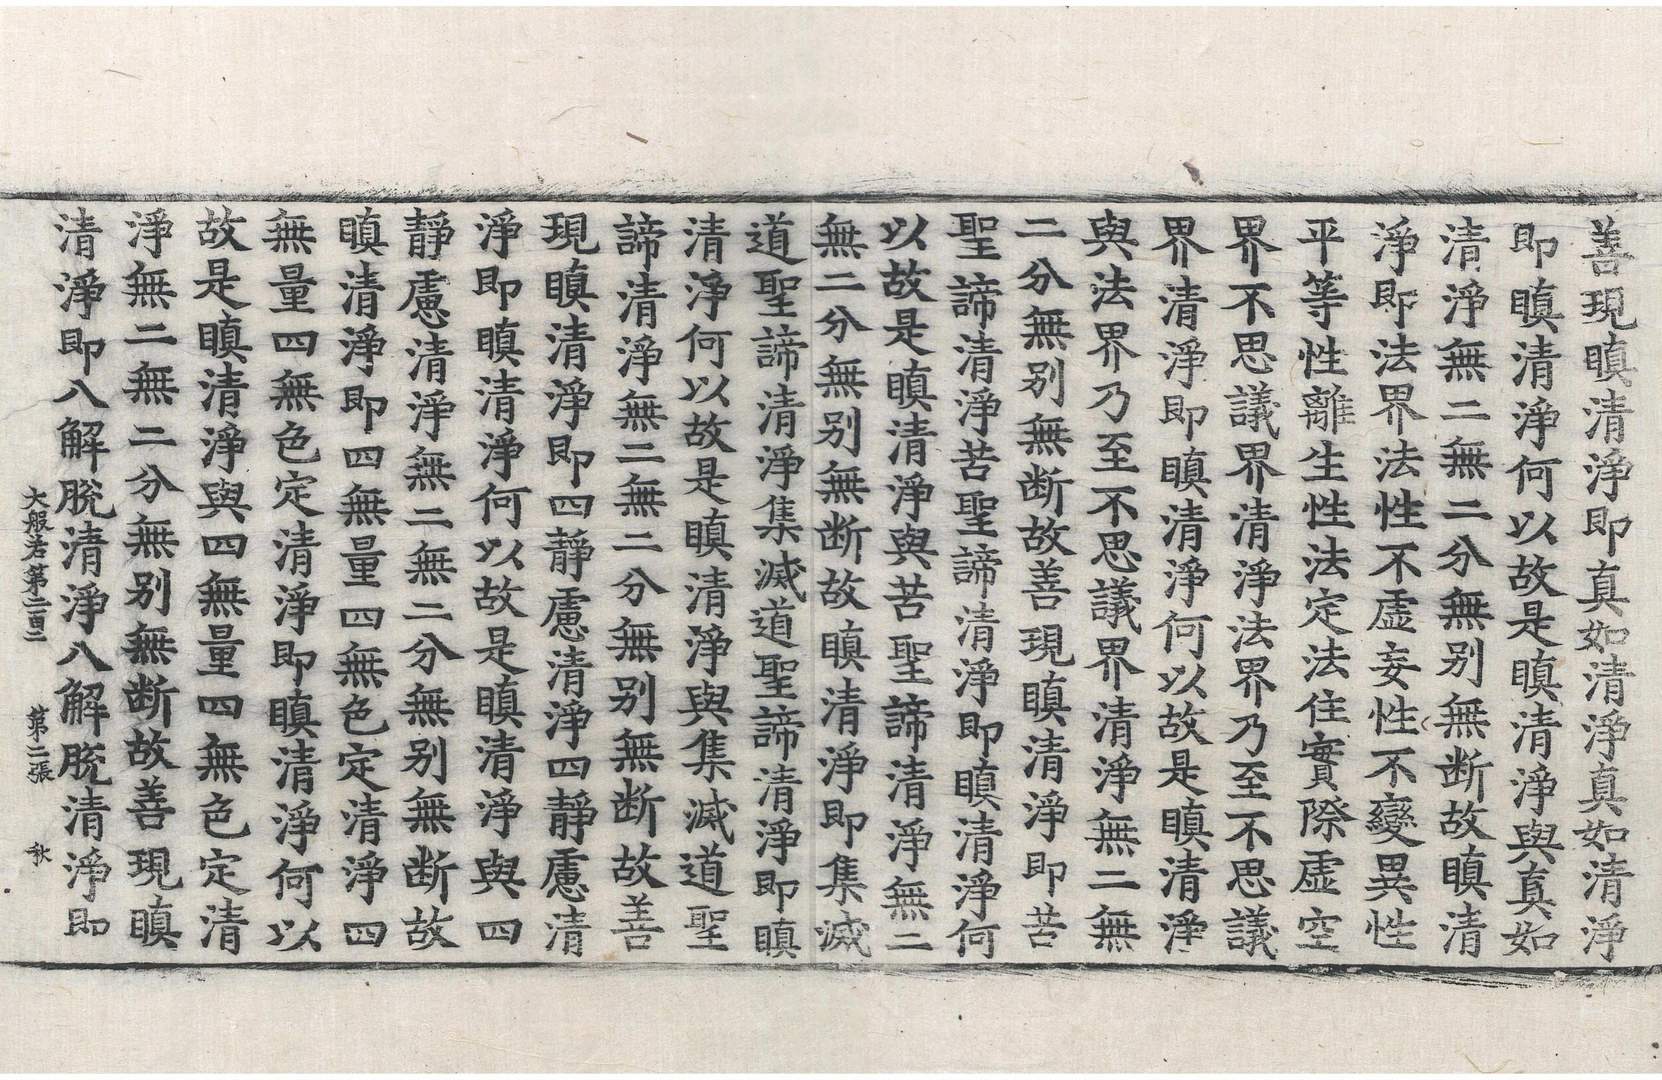 善現瞋清淨即真如清淨真如清淨
即瞋清淨何以故是瞋清淨與真如
清淨無二無二分無别無断故瞋清
淨即法界法性不虛妄性不變異性
平等性離生性法定法住實際虛空
界不思議界清淨法界乃至不思議
界清淨即瞋清淨何以故是瞋清淨
與法界乃至不思議界清淨無二無
二分無别無断故善現瞋清淨即苦
聖諦清淨苦聖諦清淨即瞋清淨何
以故是瞋清淨與苦聖諦清淨無二
無二分無别無断故瞋清淨即集滅
道聖諦清淨集滅道聖諦清淨即瞋
清淨何以故是瞋清淨與集滅道聖
諦清淨無二無二分無别無断故善
現瞋清淨即四靜慮清淨四靜慮清
淨即瞋清淨何以故是瞋清淨與四
靜慮清淨無二無二分無别無断故
瞋清淨即四無量四無色定清淨四
無量四無色定清淨即瞋清淨何以
故是瞋清淨與四無量四無色定清
淨無二無二分無别無断故善現瞋
清淨即八解脫清淨八解脫清淨即
大般若第二百二 第二張 秋